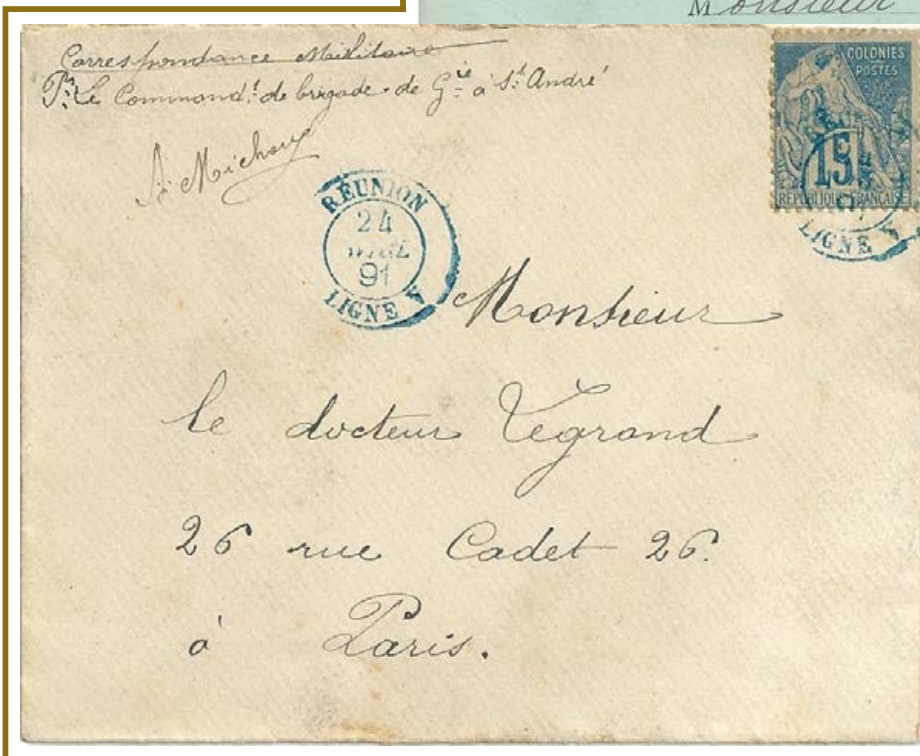 Monsieur
Correspondance Militaire
Pr. Le Command.t de brigade de G.ie à St. André
COLONIES
POSTES
15
REPUBLIQUE FRANÇAISE
LIGNE V
RÉUNION
24
91
LIGNE V
Monsieur
le docteur Legrand
26 rue Cadet 26.
à Paris.